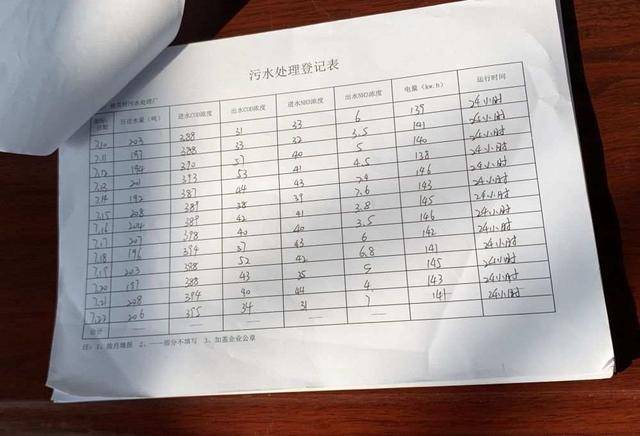 污水处理登记表
污水处理厂
日进水量（吨） 进水COD浓度 出水COD浓度 进水NH3浓度 出水NH3浓度 电量（kw.h） 运行时间
7.10 203 388 31 33 6 139 24小时
7.11 197 388 33 32 3.5 141 24小时
7.12 194 390 37 40 5 140 24小时
7.13 201 393 53 41 4.5 138 24小时
7.14 192 387 44 43 146 24小时
7.15 208 389 38 39 2.6 143 24小时
7.16 204 389 42 41 3.8 145 24小时
7.17 207 398 40 40 3.5 146 24小时
7.18 196 394 37 43 6 142 24小时
7.19 203 388 52 42 6.8 141 24小时
7.20 197 388 43 35 5 145 24小时
7.21 208 394 40 44 4 143 24小时
7.22 206 355 34 31 7 141 24小时
合计 —— —— —— —— ——
注：1、按月填报 2、——部分不填写 3、加盖企业公章